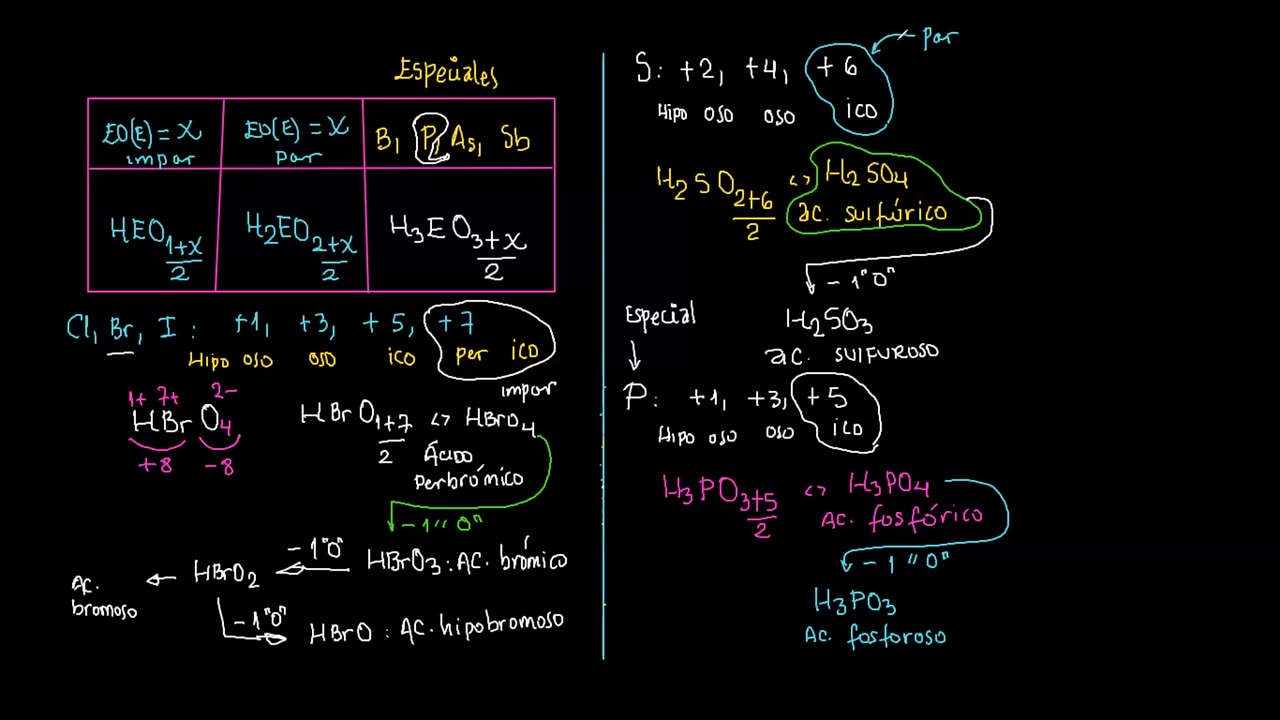 Especiales
EO(E) = x impar
EO(E) = x par
B, P, As, Sb
HEO 1+x/2
H2EO 2+x/2
H3EO 3+x/2
Cl, Br, I : +1, +3, +5, +7
Hipo oso oso ico per ico
impar
1+ 7+ 2-
HBrO4
+8 -8
HBrO 1+7/2 <> HBrO4
Ácido
Perbrómico
-1 "O"
HBrO3 : Ac. brómico
-1 "O"
HBrO2
Ac.
bromoso
-1 "O"
HBrO : Ac. hipobromoso
S: +2, +4, +6
par
Hipo oso oso ico
H2SO 2+6/2 <> H2SO4
ac. sulfúrico
-1 "O"
H2SO3
ac. sulfuroso
Especial
P: +1, +3, +5
Hipo oso oso ico
H3PO 3+5/2 <> H3PO4
Ac. fosfórico
-1 "O"
H3PO3
Ac. fosforoso